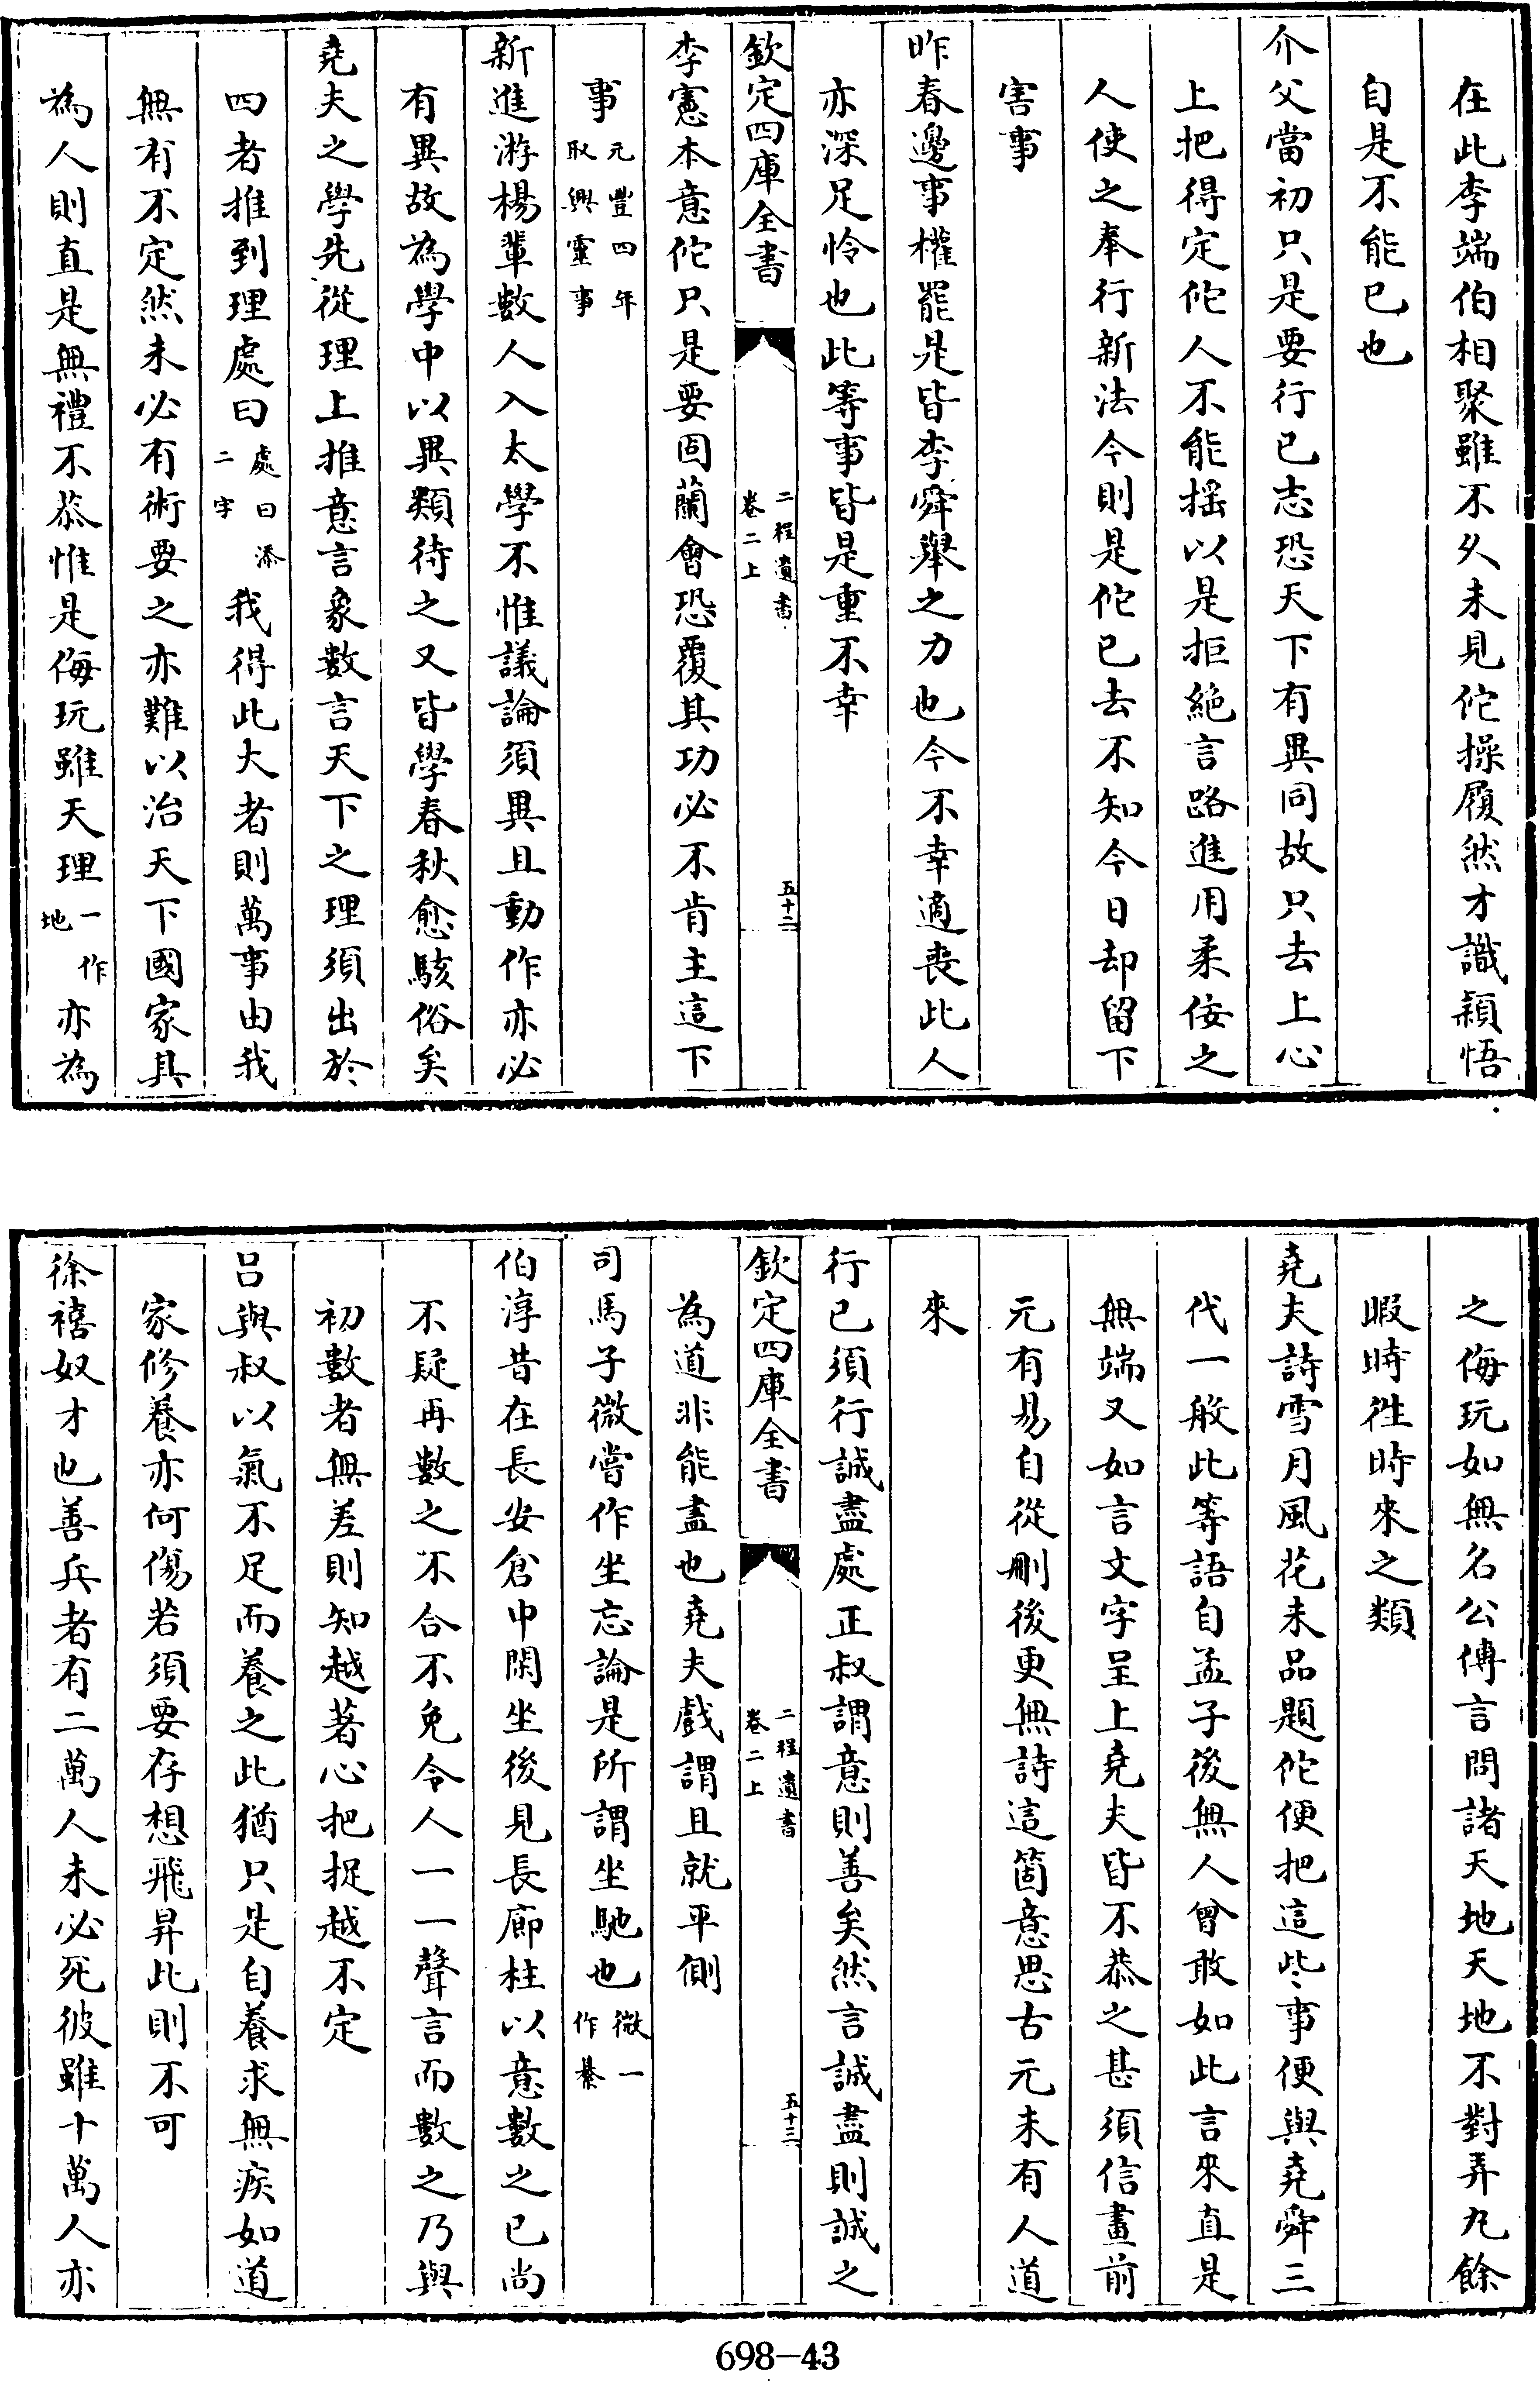 在此李端伯相聚雖不久未見佗操履然才識穎悟
自是不能已也
介父當初只是要行已志恐天下有異同故只去上心
上把得定佗人不能揺以是拒絶言路進用柔佞之
人使之奉行新法今則是佗已去不知今日却留下
害事
昨春邊事權罷是皆李舜舉之力也今不幸適喪此人
亦深足憐也此等事皆是重不幸
欽定四庫全書
二程遺書
卷二上
五十二
李憲本意佗只是要固蘭會恐覆其功必不肯主這下
事元豐四年
取興靈事
新進游楊輩數人入太學不惟議論須異且動作亦必
有異故為學中以異類待之又皆學春秋愈駭俗矣
堯夫之學先從理上推意言象數言天下之理須出於
四者推到理處曰處曰添
二字我得此大者則萬事由我
無有不定然未必有術要之亦難以治天下國家其
為人則直是無禮不恭惟是侮玩雖天理一作
地亦為
之侮玩如無名公傳言問諸天地天地不對弄丸餘
暇時徃時來之類
堯夫詩雪月風花未品題佗便把這些事便與堯舜三
代一般此等語自孟子後無人曾敢如此言來直是
無端又如言文字呈上堯夫皆不恭之甚須信畫前
元有易自從刪後更無詩這箇意思古元未有人道
來
行已須行誠盡處正叔謂意則善矣然言誠盡則誠之
欽定四庫全書
二程遺書
卷二上
五十三
為道非能盡也堯夫戲謂且就平側
司馬子微嘗作坐忘論是所謂坐馳也微一
作綦
伯淳昔在長安倉中閑坐後見長廊柱以意數之已尚
不疑再數之不合不免令人一一聲言而數之乃與
初數者無差則知越著心把捉越不定
呂與叔以氣不足而養之此猶只是自養求無疾如道
家修養亦何傷若須要存想飛昇此則不可
徐禧奴才也善兵者有二萬人未必死彼雖十萬人亦
698-43